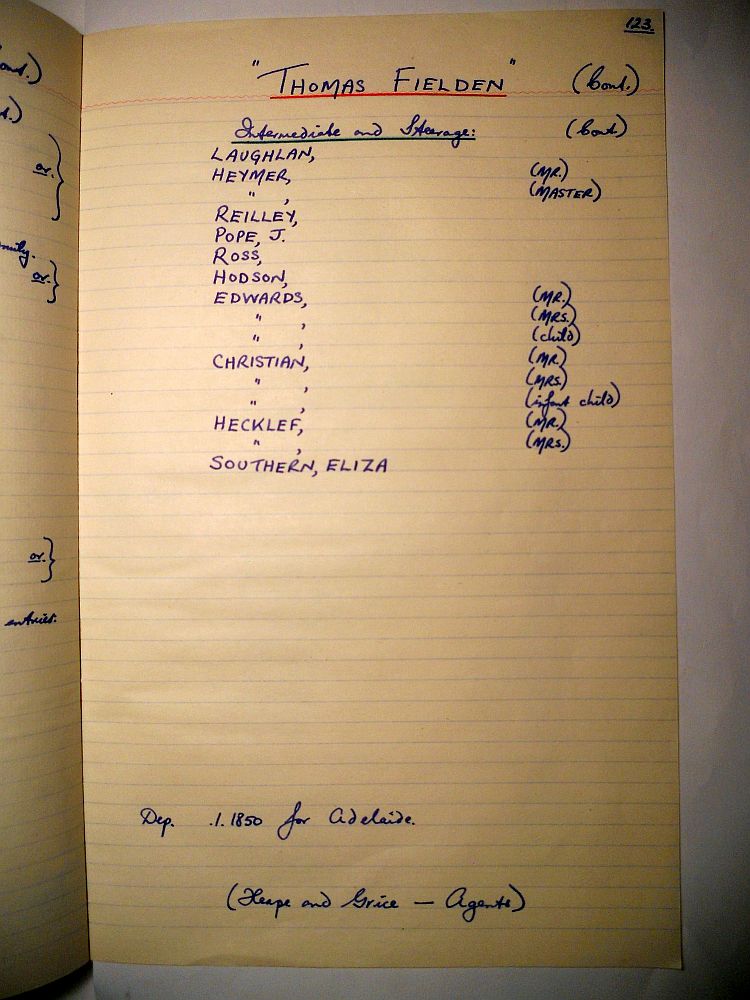 123.
"THOMAS FIELDEN" (Cont.)
Intermediate and Steerage: (Cont.)
LAUGHLAN,
HEYMER, (MR.)
" , (MASTER)
REILLEY,
POPE, J.
ROSS,
HODSON,
EDWARDS, (MR.)
" , (MRS.)
" , (child)
CHRISTIAN, (MR.)
" , (MRS.)
" , (infant child)
HECKLEF, (MR.)
" , (MRS.)
SOUTHERN, ELIZA
Dep. .1.1850 for Adelaide.
(Heape and Grice — Agents)
or. }
or. }
or. }
entries.